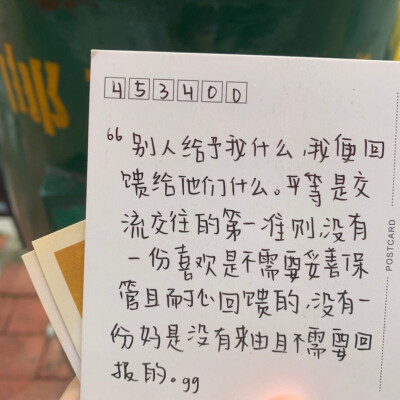 453400
“别人给予我什么,我便回
馈给他们什么。平等是交
流交往的第一准则,没有
一份喜欢是不需要妥善保
管且耐心回馈的,没有一
份好是没有来由且不需要回
报的。”
POSTCARD